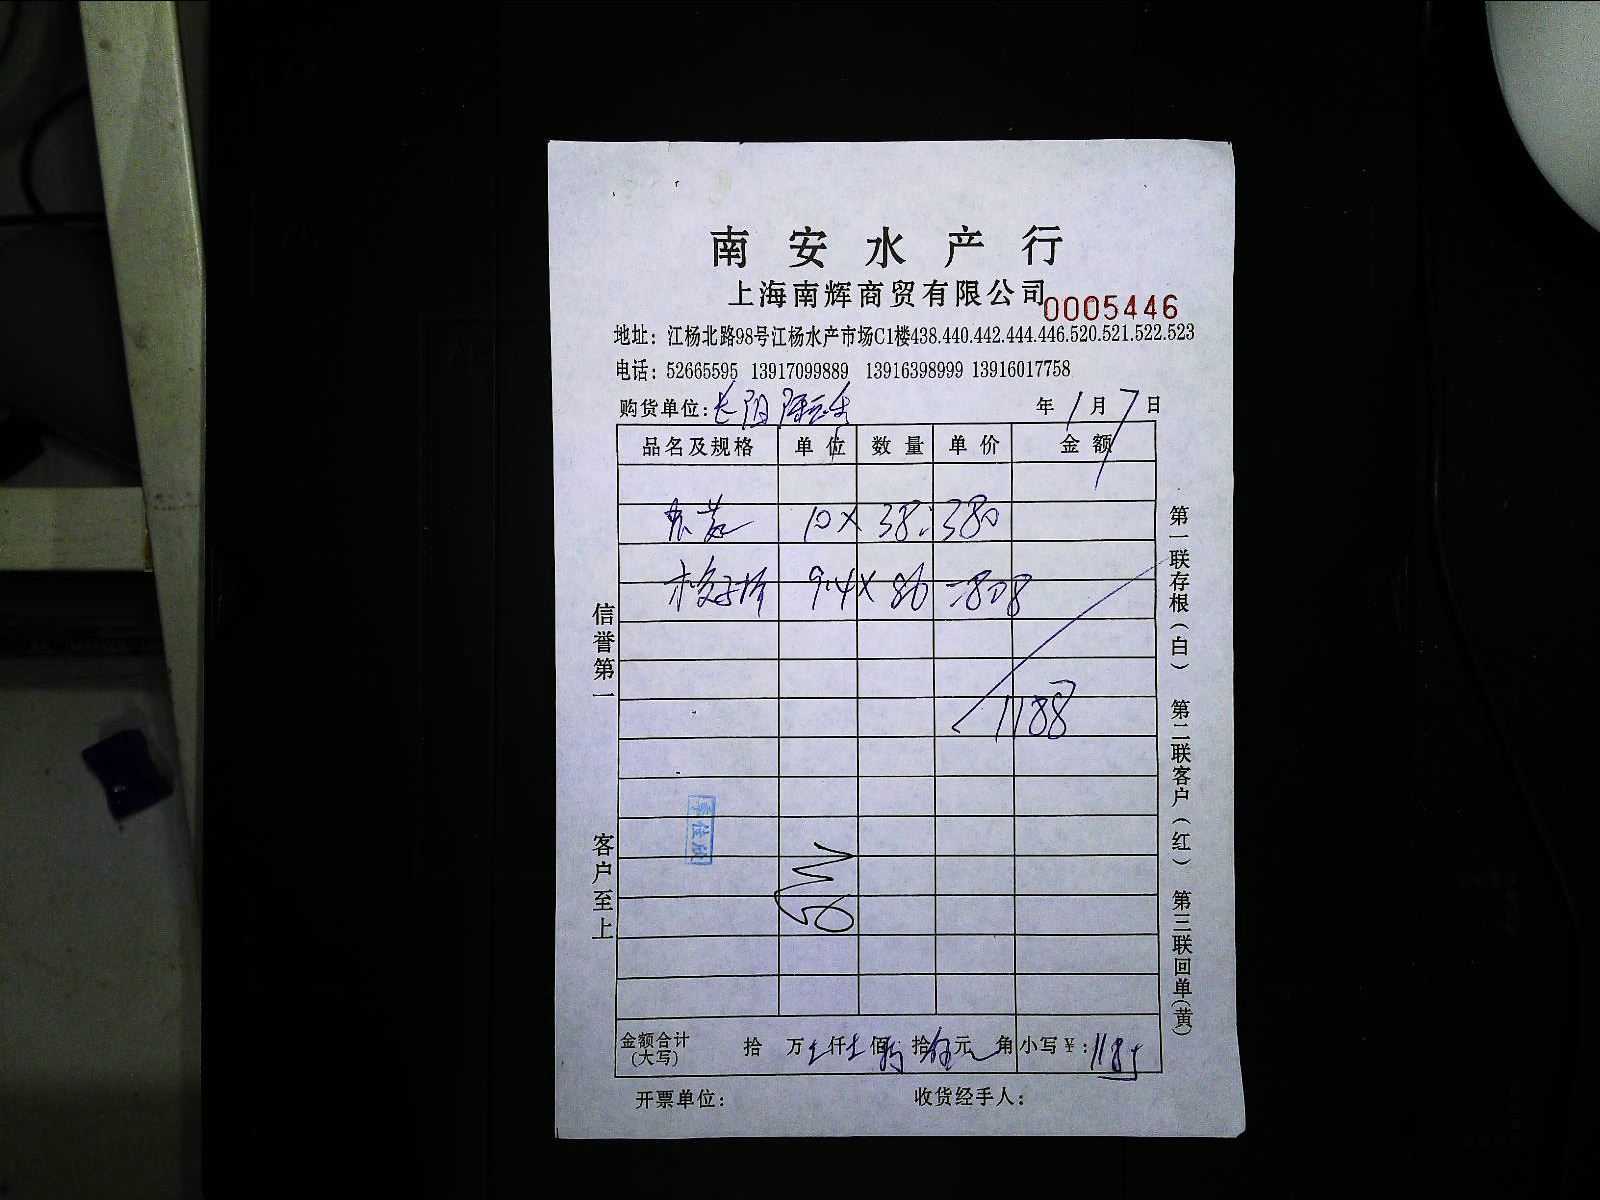 南安水产行
上海南辉商贸有限公司
0005446
地址：江杨北路98号江杨水产市场C1楼438.440.442.444.446.520.521.522.523
电话：52665595 13917099889 13916398999 13916017758
购货单位：
年 1 月 7 日
品名及规格 单位 数量 单价 金额
10 × 38 : 380
9.4 × 86 = 808
1188
金额合计(大写) 拾 万 仟 佰 拾 元 角 小写￥: 1185
开票单位： 收货经手人：
信誉第一
客户至上
第一联存根(白) 第二联客户(红) 第三联回单(黄)